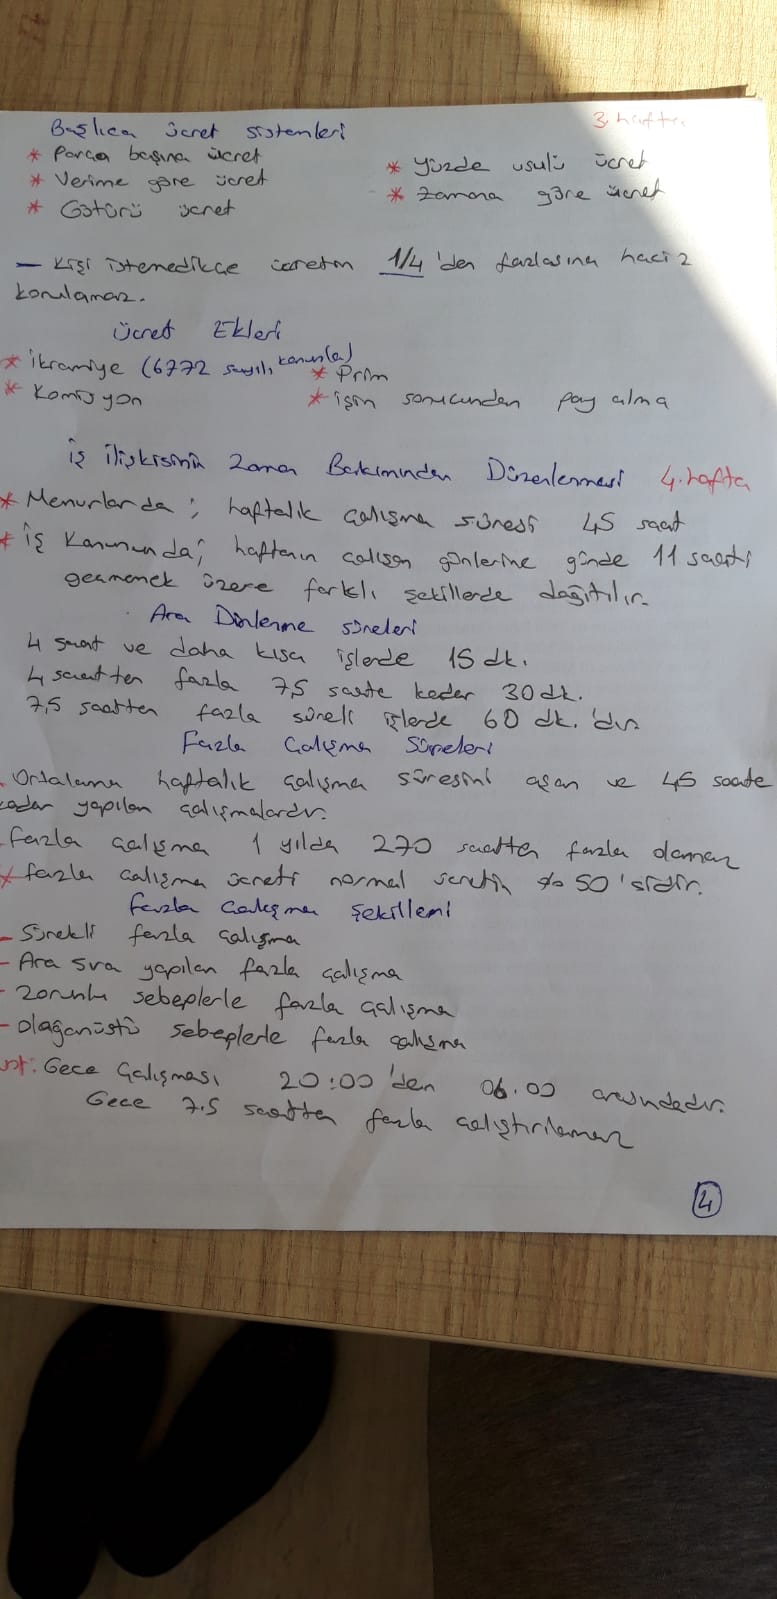 3. hafta
Başlıca ücret sistemleri
* Parça başına ücret
* Yüzde usulü ücret
* Verime göre ücret
* Zamana göre ücret
* Götürü ücret
– Kişi istemedikçe ücretin 1/4 'den fazlasına haciz
konulamaz.
Ücret Ekleri
* İkramiye (6772 sayılı kanunla)
* Prim
* Komisyon
* işin sonucundan pay alma
İş ilişkisinin Zaman Bakımından Düzenlenmesi 4. hafta
* Memurlarda; haftalık çalışma süresi 45 saat
* İş Kanununda; haftanın çalışan günlerine günde 11 saati
geçmemek üzere farklı şekillerde dağıtılır.
Ara Dinlenme süreleri
4 saat ve daha kısa işlerde 15 dk.
4 saatten fazla 7,5 saate kadar 30 dk.
7,5 saatten fazla süreli işlerde 60 dk. 'dır
Fazla Çalışma Süreleri
Ortalama haftalık çalışma süresini aşan ve 45 saate
kadar yapılan çalışmalardır.
fazla çalışma 1 yılda 270 saatten fazla olamaz
* fazla çalışma ücreti normal ücretin % 50 'sidir.
fazla Çalışma Şekilleri
– Sürekli fazla çalışma
– Ara sıra yapılan fazla çalışma
– Zorunlu sebeplerle fazla çalışma
– Olağanüstü sebeplerle fazla çalışma
not: Gece Çalışması 20:00 'den 06.00 arasındadır.
Gece 7.5 saatten fazla çalıştırılamaz
4